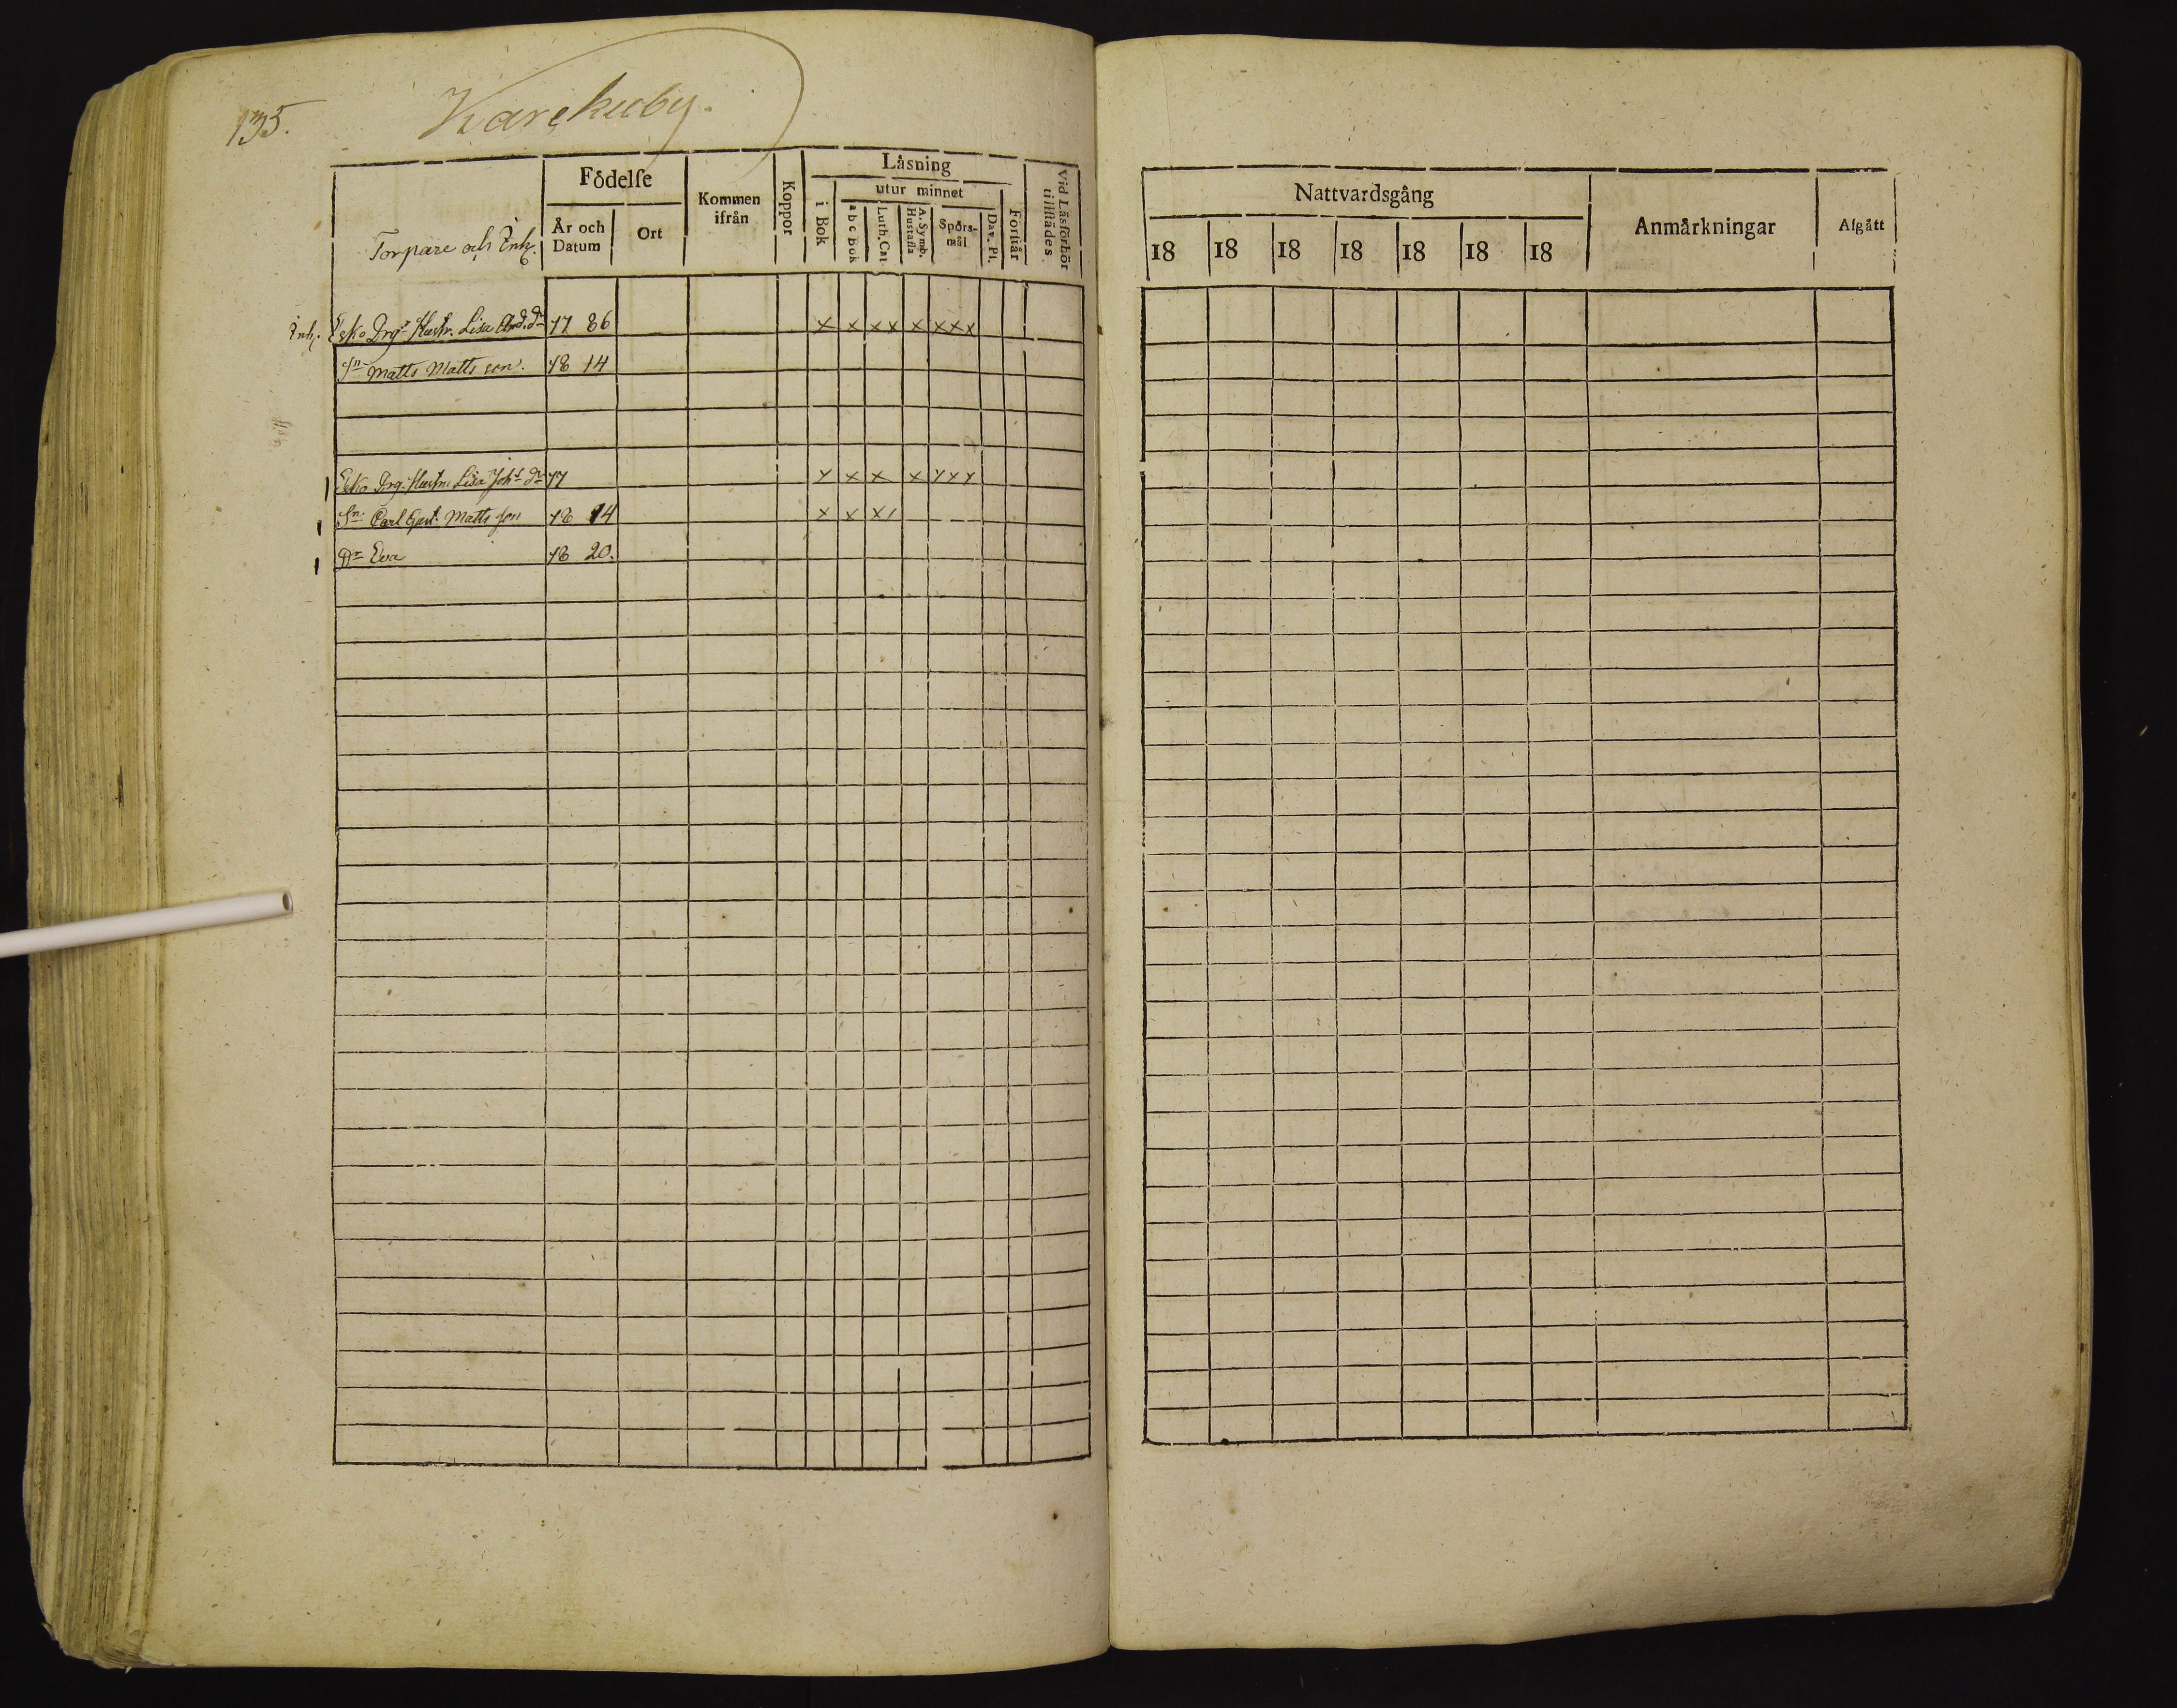 135.
Karchuby.
Torpare och Inh.
Födelse
År och Datum
Ort
Kommen ifrån
Koppor
Läsning
i Bok
utur minnet
a b c Bok
Luth. Cat.
A. Symb. Hustafla
Spörsmål
Dav. Pl.
Förstår
Vid Läsförhör tillstädes
Inh. Esko Drg:s Hustr. Lisa And. Dr 17 86 x x xx x xxx
Sn Matts Matts son. 18 14
Esko Drg. Hustru Lisa Joh:s dr 17 x x x x xxx
Sn Carl Gust. Matts son 18 14 x x x
Dr Eva 18 20.
Nattvardsgång
18 18 18 18 18 18 18
Anmärkningar
Afgått